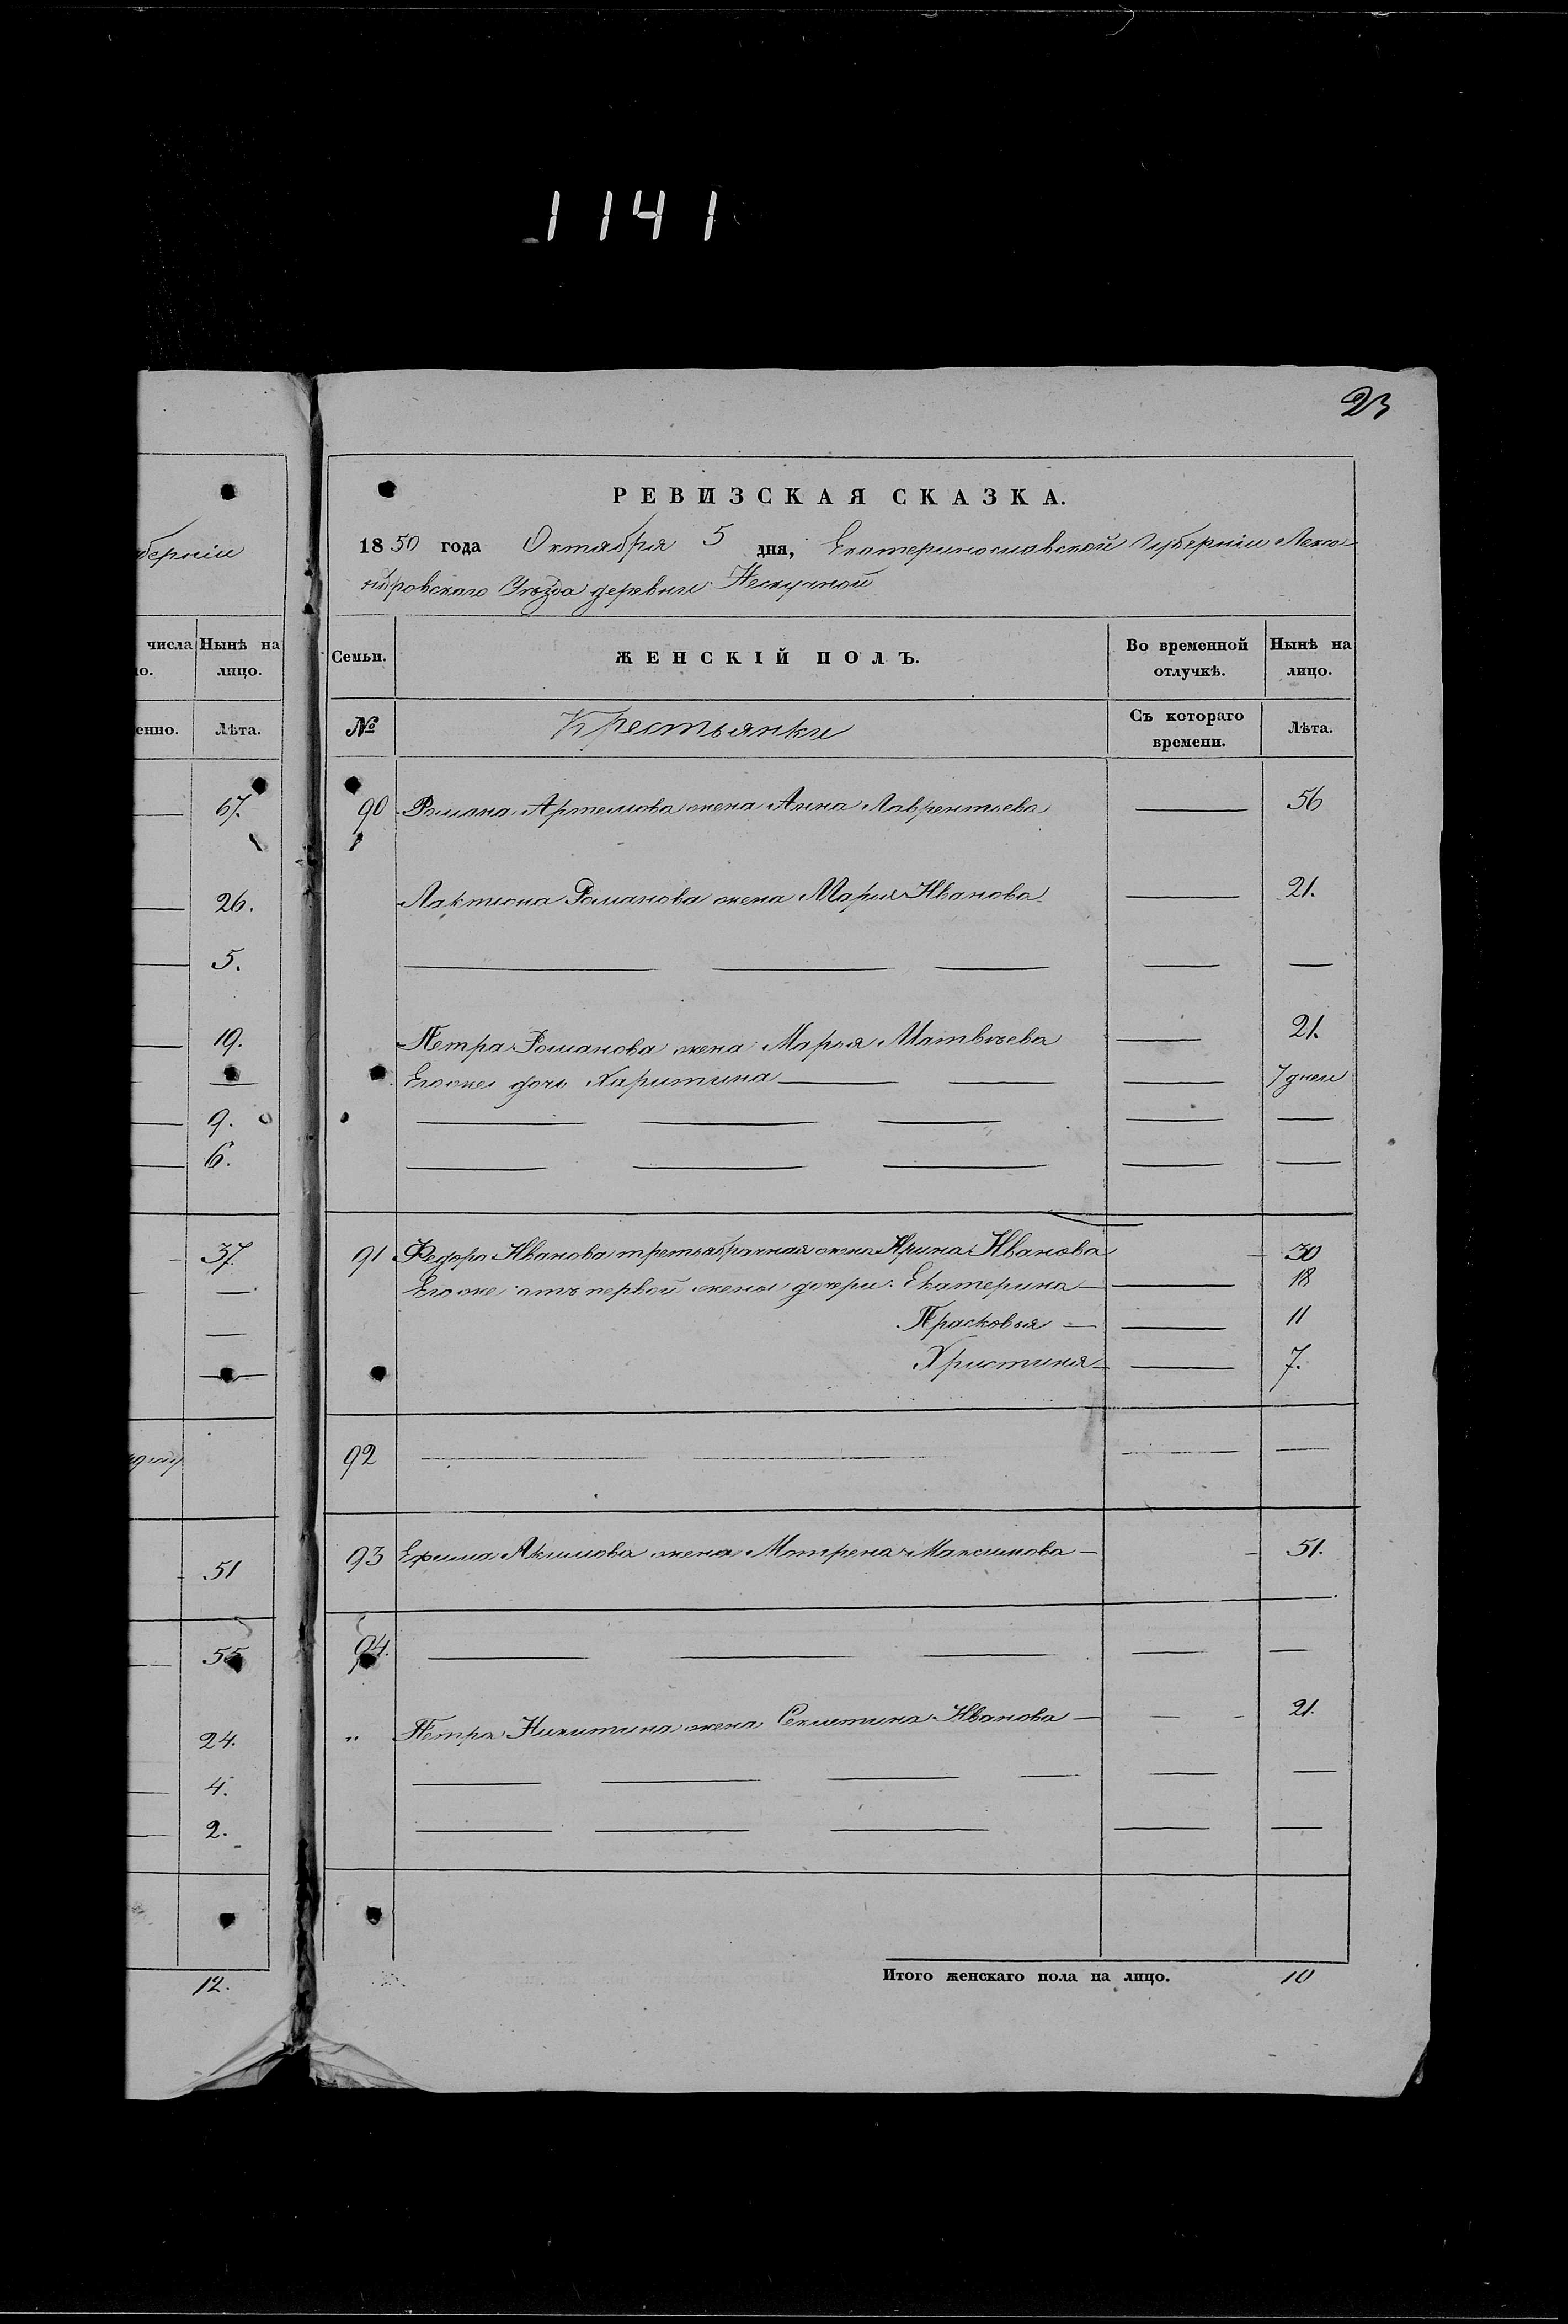 1141
23
РЕВИЗСКАЯ СКАЗКА.
1850 года Октября 5 дня, Екатеринославской Губерніи Алекса
ндровскаго Уѣзда деревни Нескучной
берніи
числа Нынѣ на лицо.
Семьи. ЖЕНСКІЙ ПОЛЪ. Во временной отлучкѣ. Нынѣ на лицо.
енно. Лѣта.
№ Крестьянки Съ котораго времени. Лѣта.
67.
90 Романа Артемова жена Анна Лаврентьева — 56
26.
Лактиона Романова жена Марья Иванова — 21.
5.
— — — — —
19.
Петра Романова жена Марья Матвѣева — 21.
—
Его же дочь Харитина — — — 7 дней
9.
— — — — —
6.
— — — — —
37.
91 Федора Иванова третьебрачная жена Ирина Иванова - 30
—
Его же отъ первой жены дочери: Екатерина — — 18
—
Прасковья — — 11
—
Христина — — 7.
92 — — — —
51
93 Ефима Акимова жена Матрена Максимова — - 51.
55
94. — — — — —
24.
" Петра Никитина жена Секлетина Иванова — — - 21.
4.
— — — — — —
2.
— — — — —
12.
Итого женскаго пола на лицо. 10